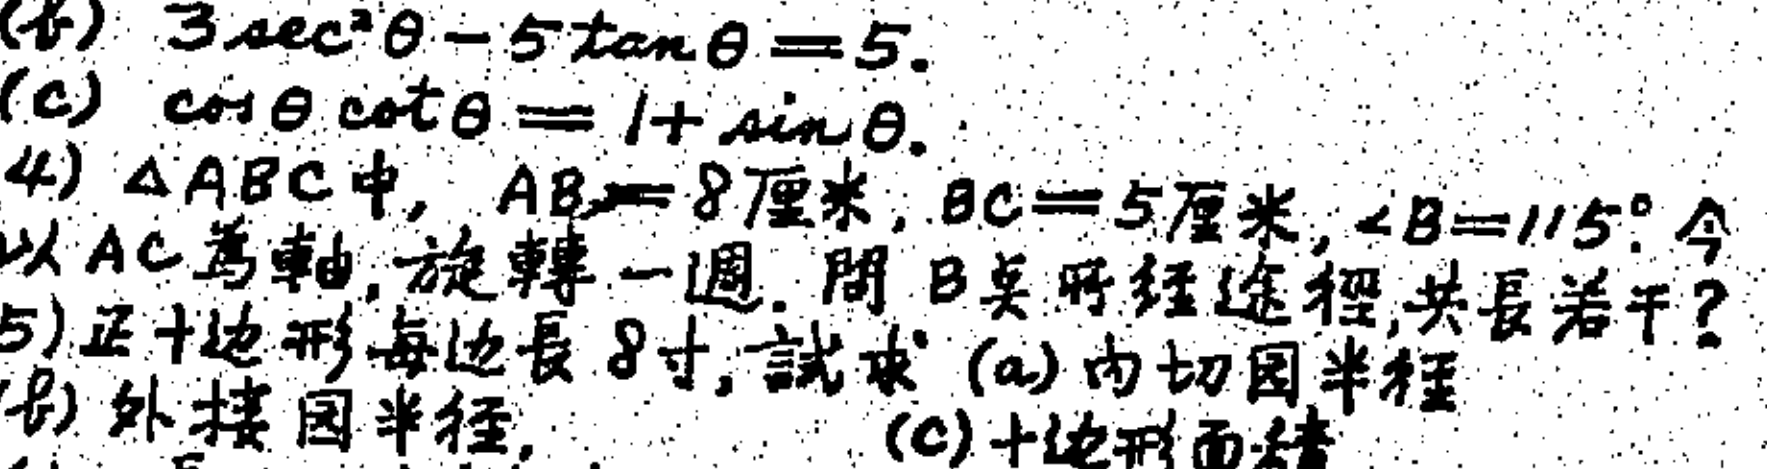 (b) 3 sec²θ - 5 tan θ = 5.
(c) cos θ cot θ = 1 + sin θ.
4) △ABC中, AB = 8厘米, BC = 5厘米, ∠B = 115°. 今
以AC爲軸, 旋轉一週. 問B奌所経途徑, 共長若干?
5) 正十边形每边長8寸, 試求 (a) 内切园半徑
(b) 外接园半徑, (c) 十边形面積